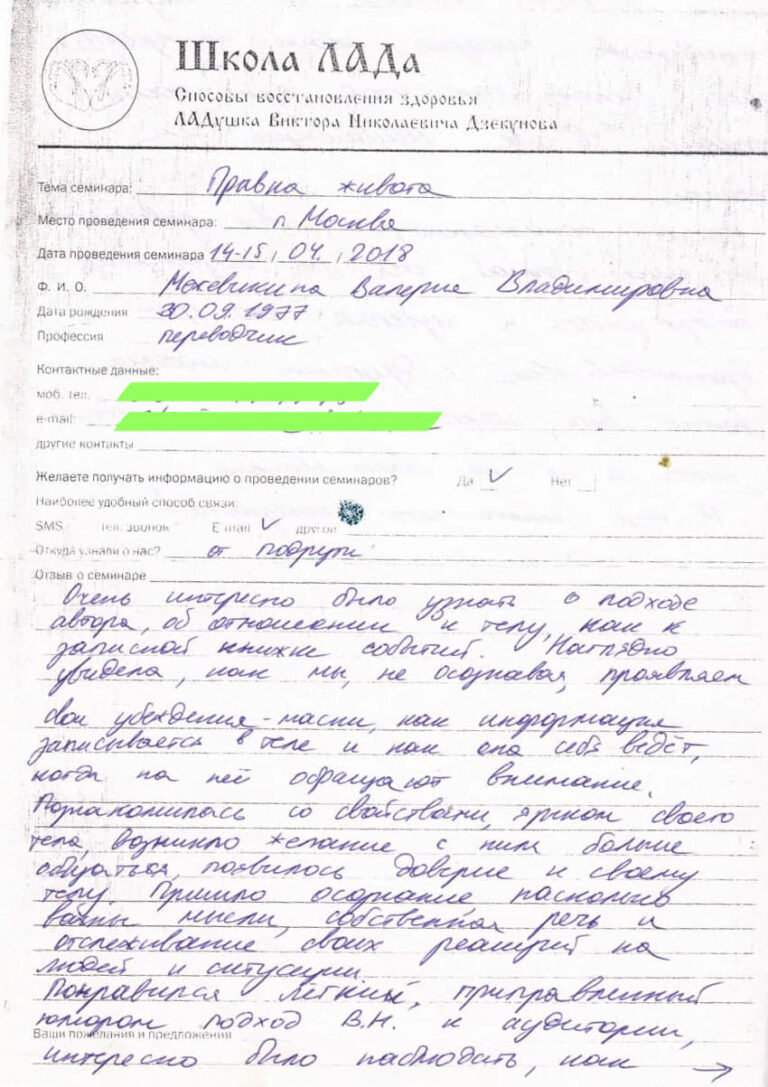 Школа ЛАДа
Способы восстановления здоровья
ЛАДушка Виктора Николаевича Дзекунова
Тема семинара: Правка живота
Место проведения семинара: г. Москва
Дата проведения семинара 14-15, 04, 2018
Ф. И. О. Валерия Владимировна
Дата рождения 30.09.1977
Профессия переводчик
Контактные данные:
моб. тел.
e-mail:
другие контакты
Желаете получать информацию о проведении семинаров? Да ✓ Нет
Наиболее удобный способ связи:
SMS тел. звонок E mail ✓ другой
Откуда узнали о нас? от подруги
Отзыв о семинаре
Очень интересно было узнать о подходе
автора, об отношении к телу, как к
записной книжке событий. Наглядно
увидела, как мы, не осознавая, проявляем
свои убеждения-маски, как информация
записывается в теле и как она себя ведёт,
когда на неё обращают внимание.
Познакомилась со свойствами, языком своего
тела, возникло желание с ним больше
общаться, появилось доверие к своему
телу. Пришло осознание насколько
важны мысли, собственная речь и
отслеживание своих реакций на
людей и ситуации.
Понравился лёгкий, приправленный
юмором подход В.Н. к аудитории,
Ваши пожелания и предложения
интересно было наблюдать, как →